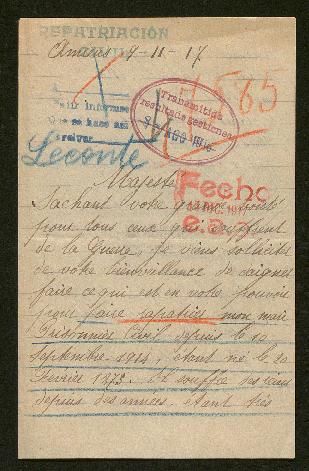 REPATRIACIÓN
CIVIL
Amiens 9-11-17
585
Pedir informes
Que se hace así
Transmitida
resultado gestiones
AGO 1918
Leconte
Majesté
Fecho
DIC. 1917
e.a.a.
Sachant votre
pour tous ceux qui souffrent
de la Guerre, je viens solliciter
de votre bienveillance de daigner
faire ce qui est en votre pouvoir
pour faire rapatrier mon mari
Prisonnier Civil depuis le 10
Septembre 1914, étant né le 20
Février 1873. Il souffre des reins
depuis des années, étant très